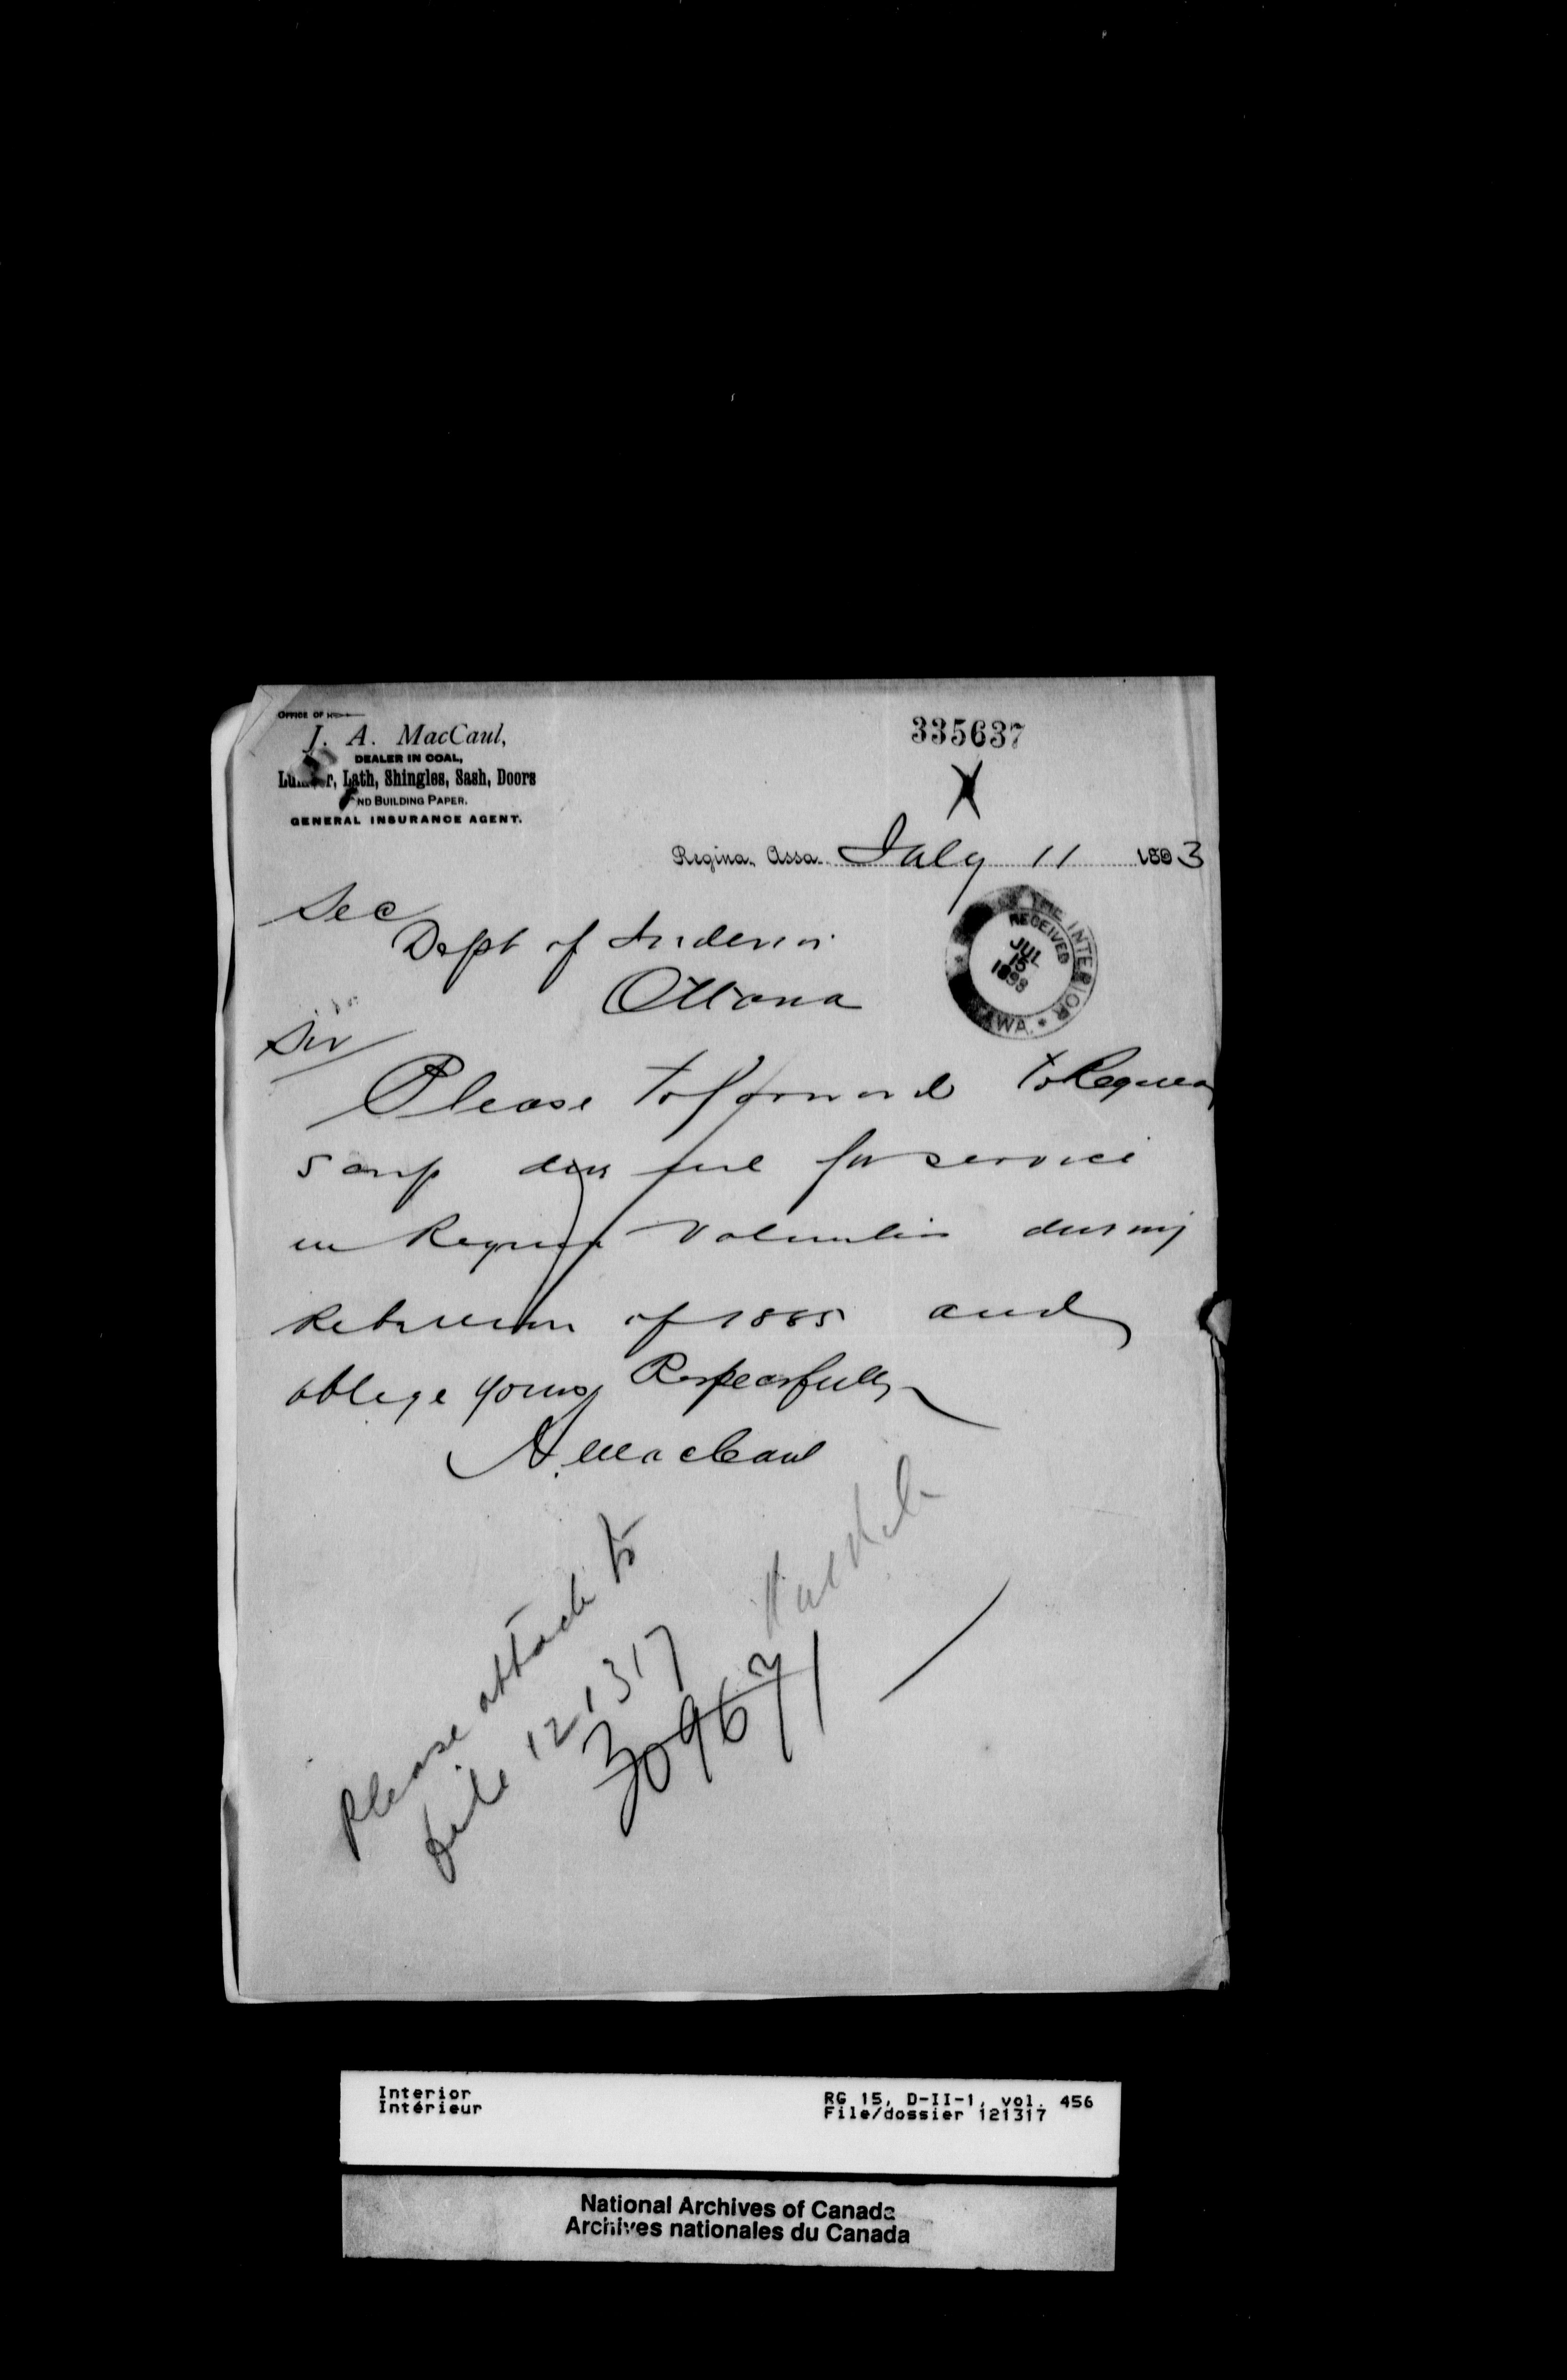 OFFICE OF
J. A. MacCaul,
DEALER IN COAL,
Lumber, Lath, Shingles, Sash, Doors
AND BUILDING PAPER.
GENERAL INSURANCE AGENT.
335637
X
Regina, Assa. July 11 1893
Sec
Dept of Interior
Ottawa
THE INTERIOR
RECEIVED
JUL
15
1893
Sir
Please to forward to Regina
scrip due me for service
in Regina Volunteers during
Rebellion of 1885 and
oblige yours Respectfully
A. MacCaul
Please attach to
file 121317
309671
Interior
Intérieur
RG 15, D-II-1, vol. 456
File/dossier 121317
National Archives of Canada
Archives nationales du Canada